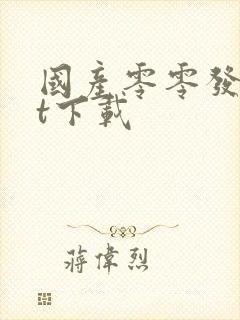 國產零零發
t下載
蔣偉烈